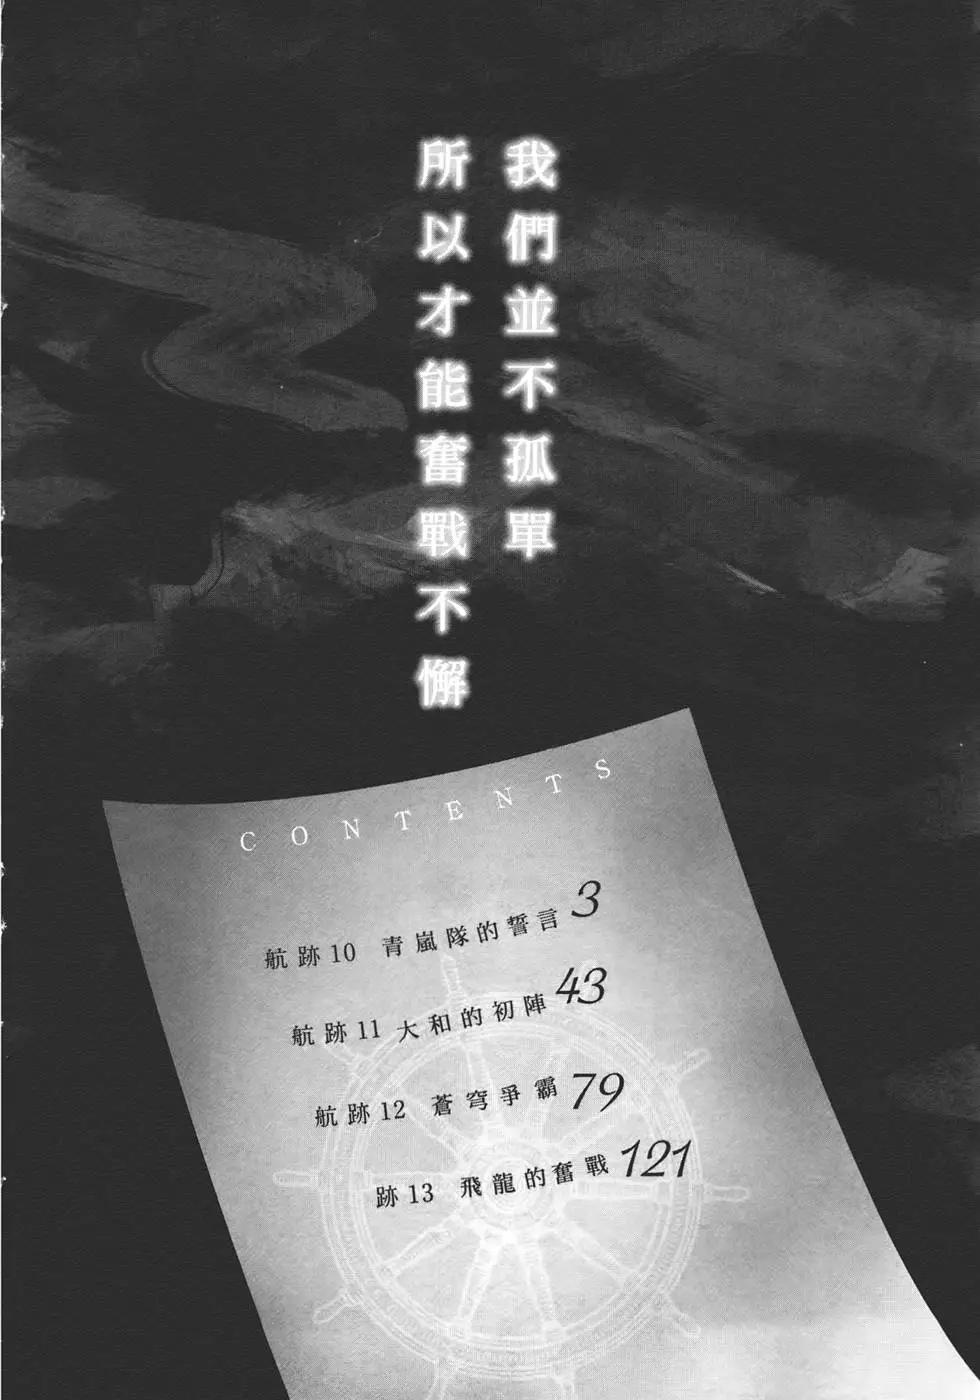 我們並不孤單
所以才能奮戰不懈
CONTENTS
航跡10 青嵐隊的誓言 3
航跡11 大和的初陣 43
航跡12 蒼穹爭霸 79
跡13 飛龍的奮戰 121